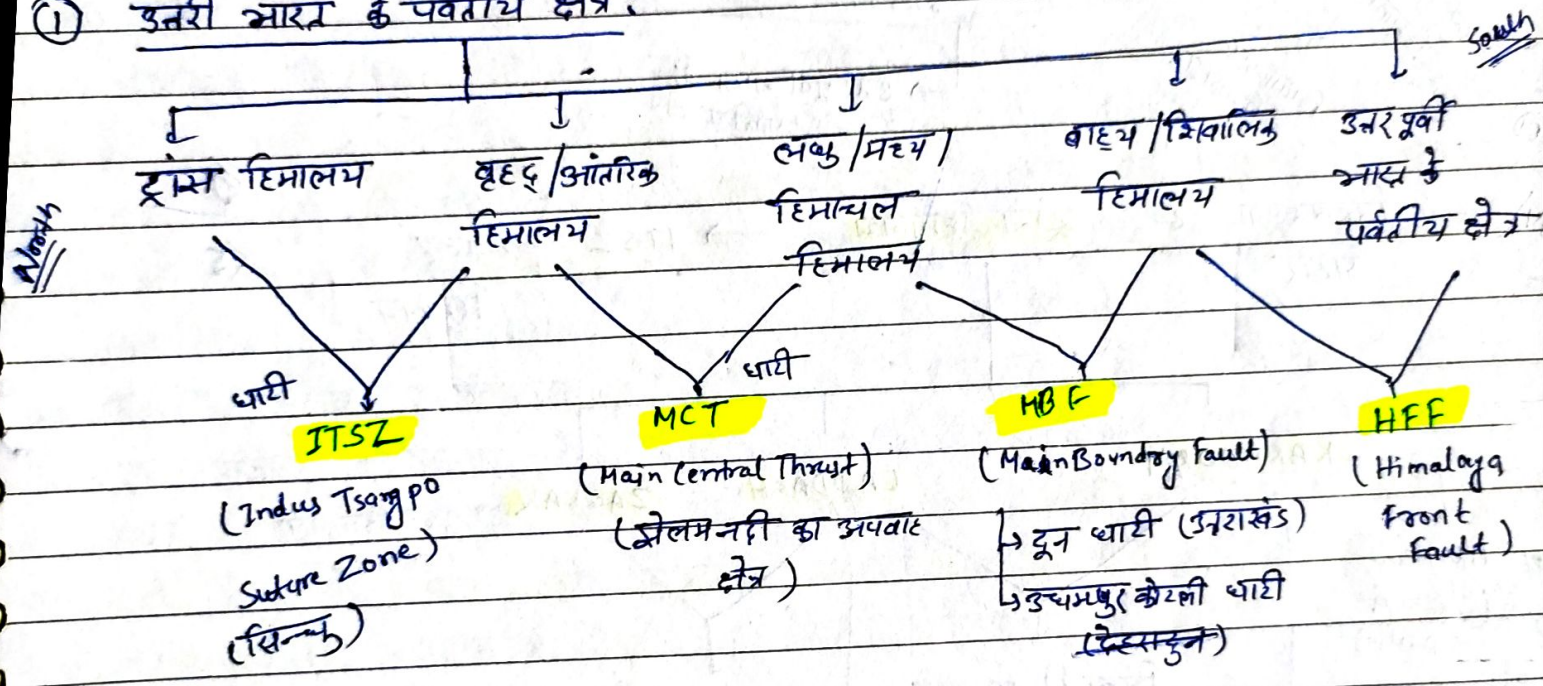 ① उत्तरी भारत के पर्वतीय क्षेत्र.
South
North
ट्रांस हिमालय
वृहद् /आंतरिक
हिमालय
लघु /मध्य /
हिमाचल
हिमालय
बाह्य /शिवालिक
हिमालय
उत्तर पूर्वी
भारत के
पर्वतीय क्षेत्र
घाटी
ITSZ
(Indus Tsangpo
Suture Zone)
(सिन्धु)
घाटी
MCT
(Main Central Thrust)
(झेलम नदी का अपवाह
क्षेत्र)
MBF
(Main Boundry Fault)
→ दून घाटी (उत्तराखंड)
→ उधमपुर कोटली घाटी
(देहरादुन)
HFF
(Himalaya
Front
Fault)